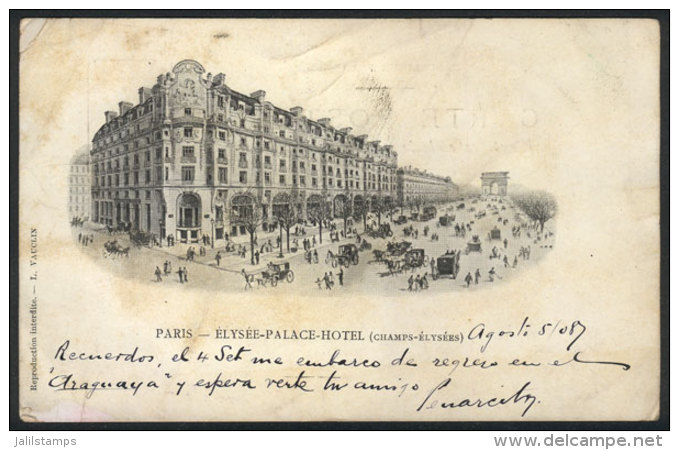 PARIS — ÉLYSÉE-PALACE-HOTEL (CHAMPS-ÉLYSÉES) Agosto 5/08
Recuerdos, el 4 Set me embarco de regreso en el
"Araguaya" y espera verte tu amigo
Reproduction interdite. — L. VAUCLIN
jalilstamps
www.delcampe.net